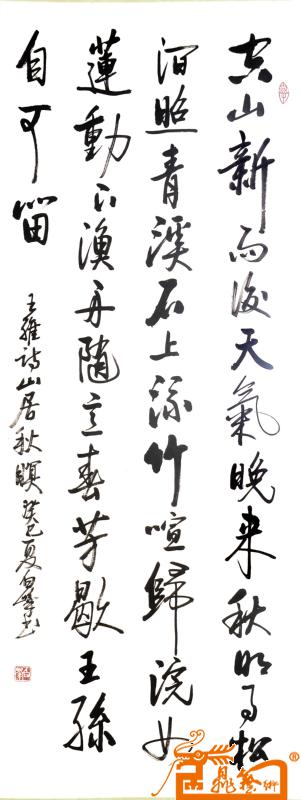 空山新雨後天氣晚来秋明月松
間照青溪石上流竹喧歸浣女
蓮動下漁舟隨意春芳歇王孫
自可留
王維詩山居秋暝癸巳夏